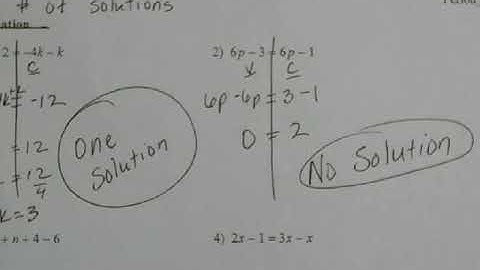 # of solutions
Period
2 = -4k - k
C
= -12
= 12
= 12/4
k = 3
One Solution
2) 6p - 3 = 6p - 1
V C
6p - 6p = 3 - 1
0 = 2
No Solution
+ n + 4 - 6
4) 2x - 1 = 3x - x